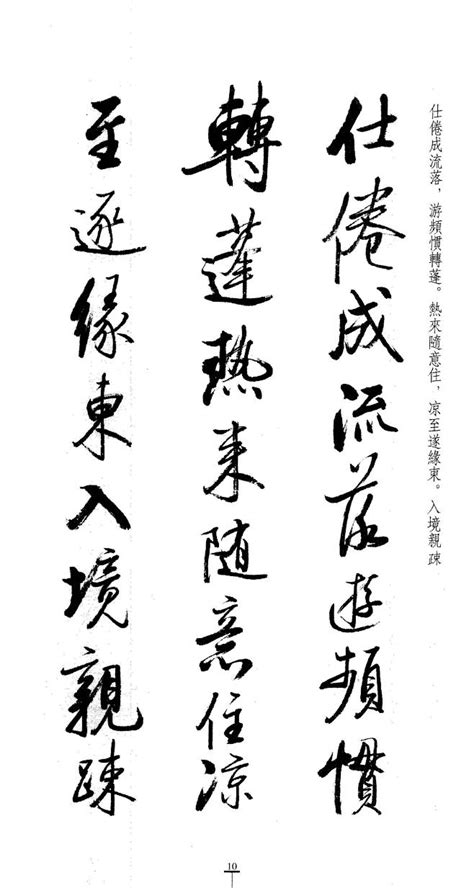 仕倦成流落，游頻慣轉蓬。熱來隨意住，凉至遂緣東。入境親疎
仕倦成流落遊頻慣
轉蓬熱来随意住凉
至逐緣東入境親疎
10